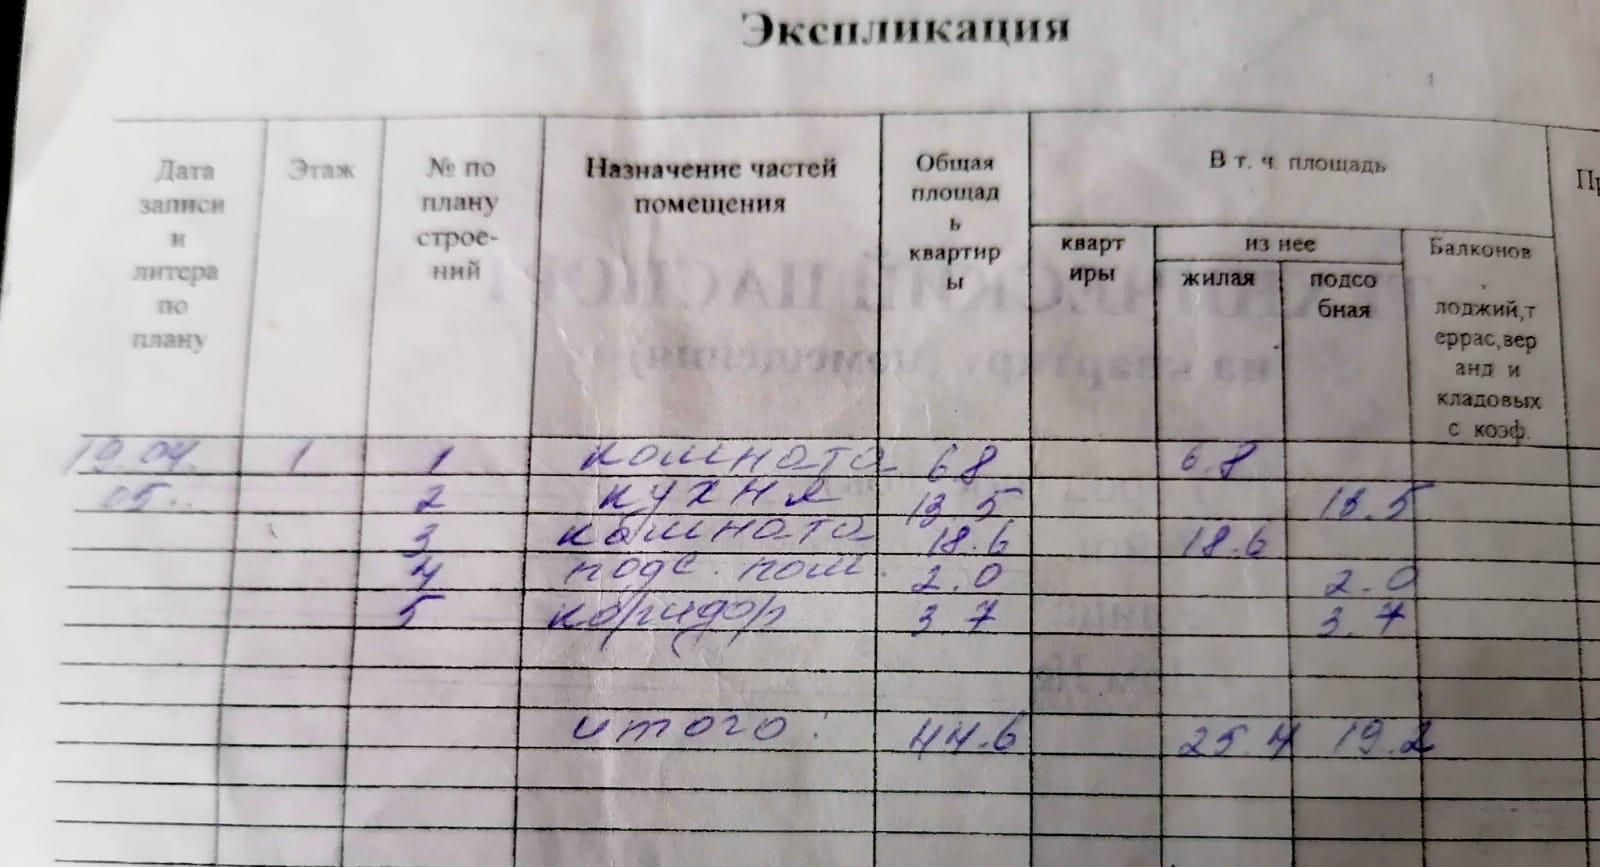 Экспликация
Дата записи и литера по плану | Этаж | № по плану строе-ний | Назначение частей помещения | Общая площад ь квартир ы | В т. ч. площадь
кварт иры | из нее | Балконов , лоджий,т еррас,вер анд и кладовых с коэф.
жилая | подсо бная
19.04. | 1 | 1 | комната | 6.8 | 6.8
05.. | 2 | кухня | 13.5 | 13.5
3 | комната | 18.6 | 18.6
4 | подс. пом. | 2.0 | 2.0
5 | коридор | 3.7 | 3.7
итого: | 44.6 | 25.4 | 19.2